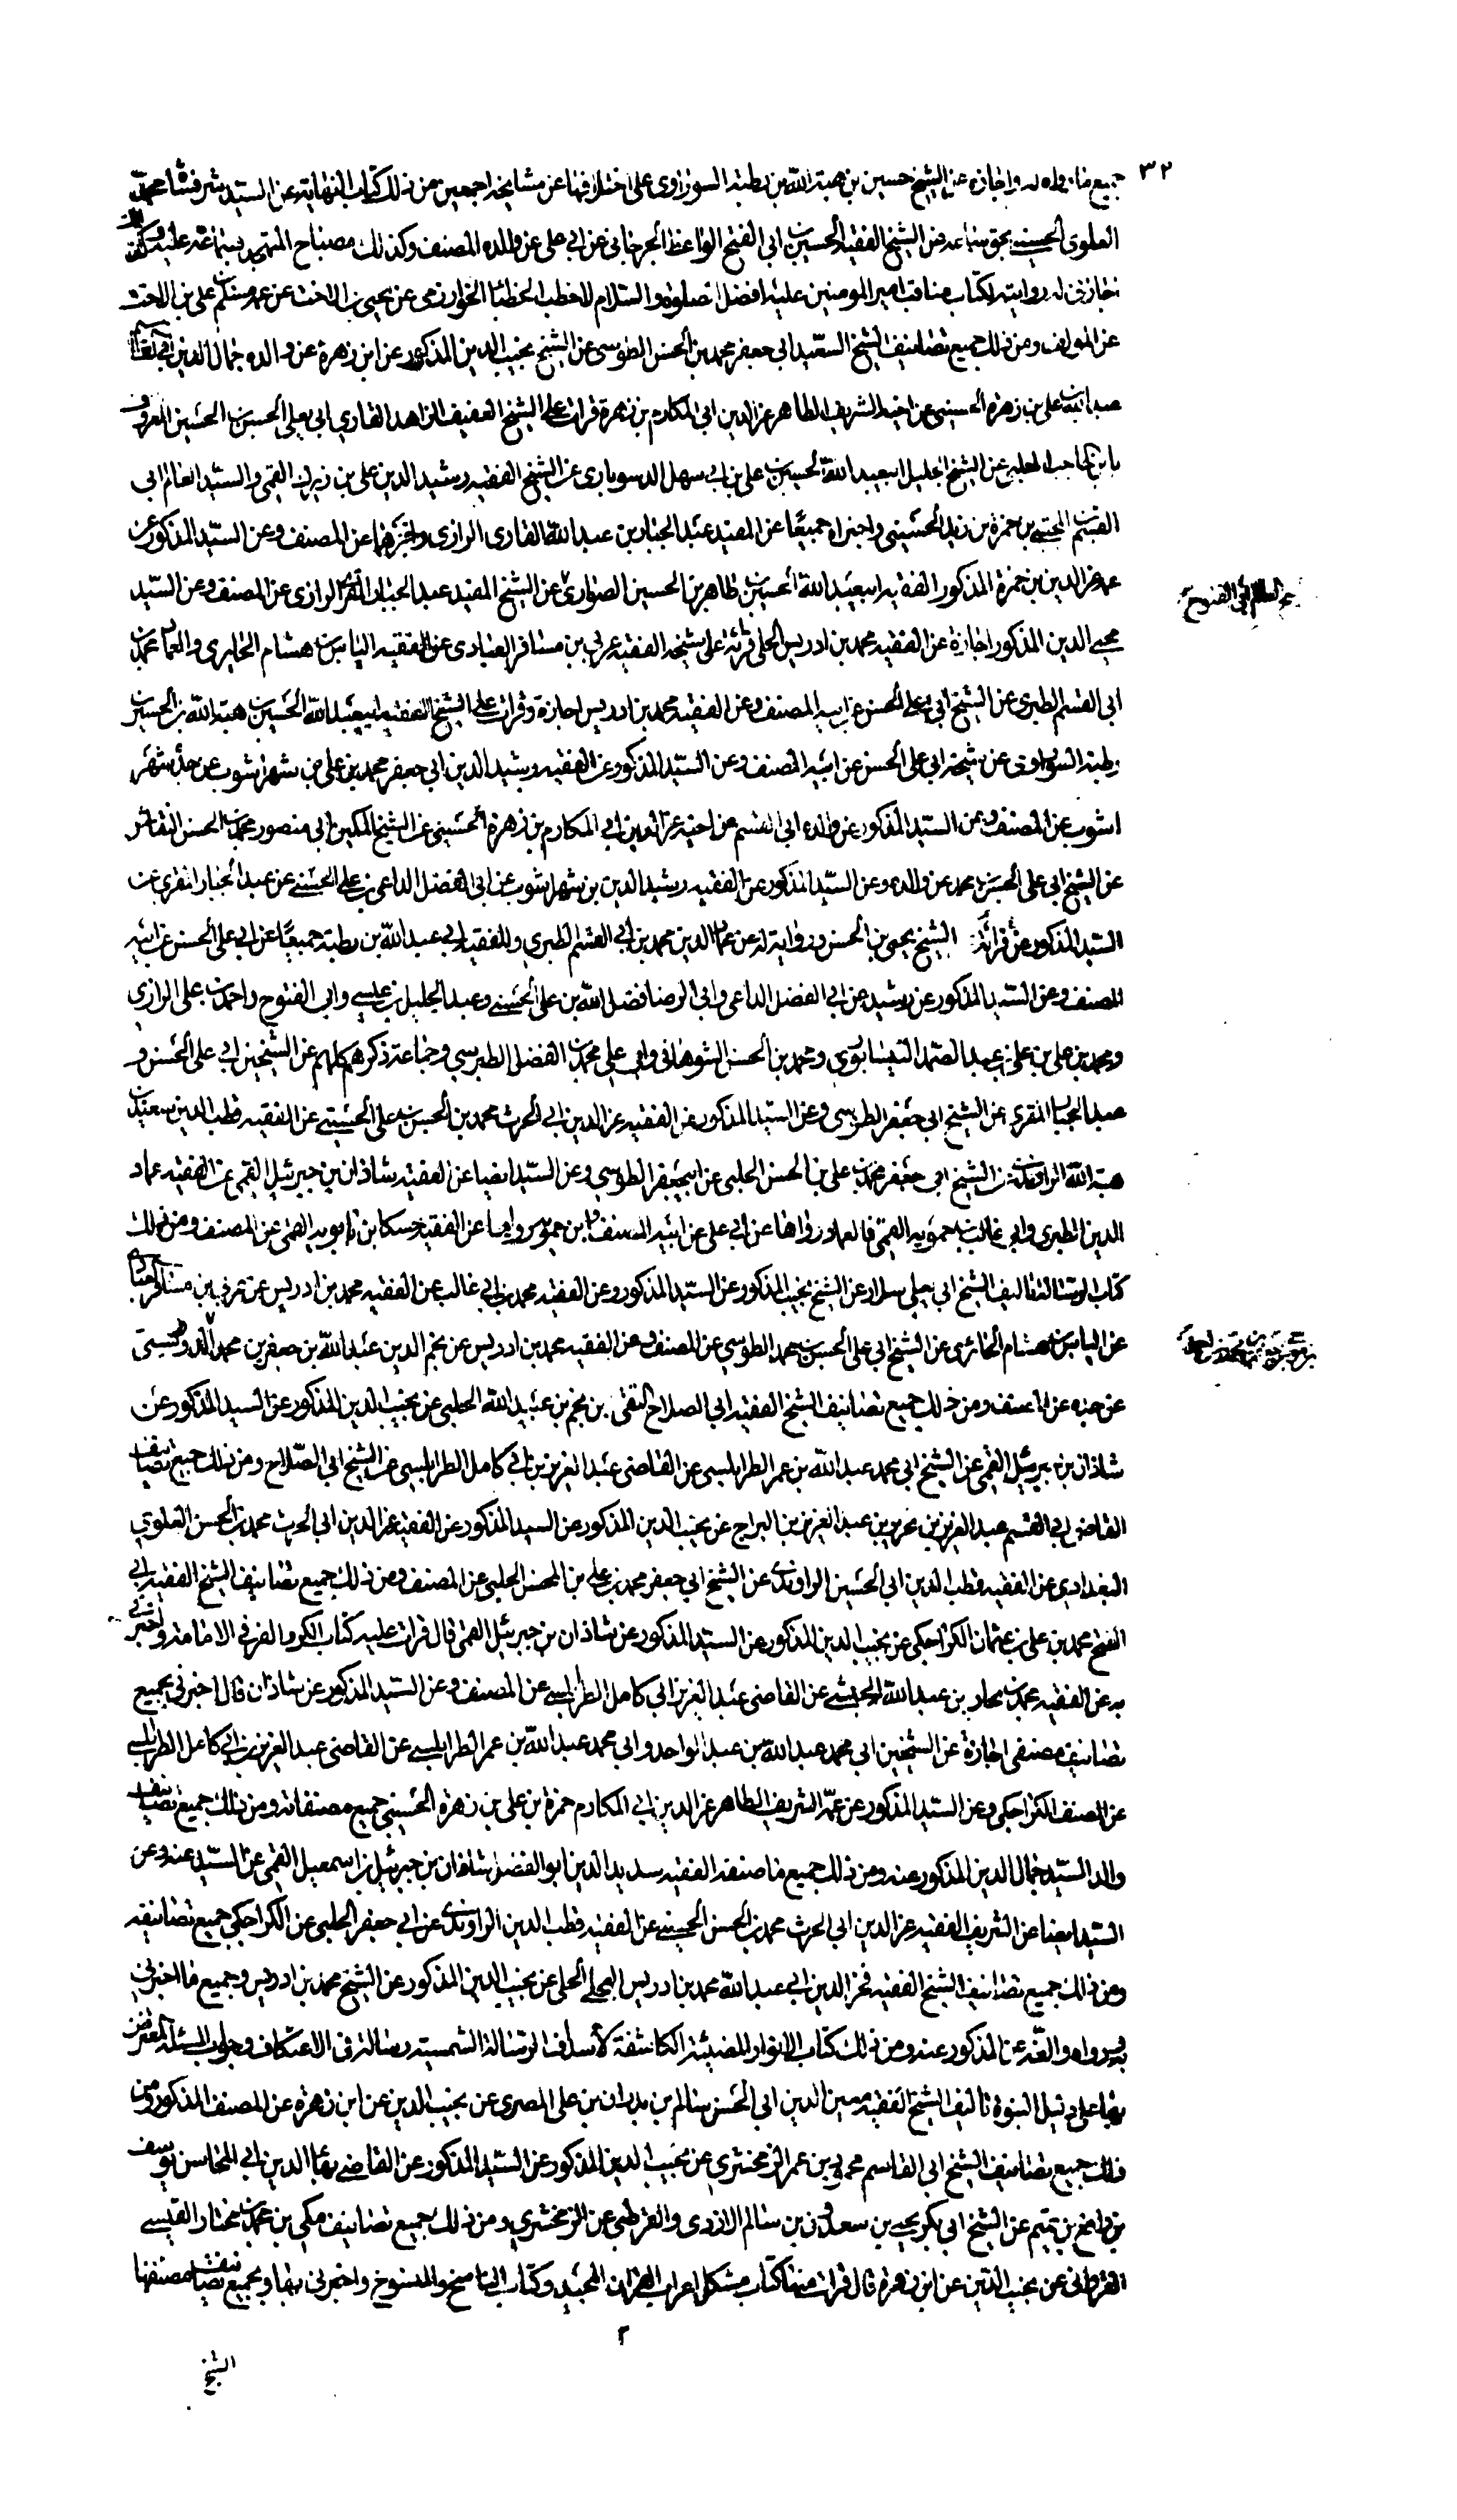 ٣٢
جميع ما رواه له واجازه عن الشيخ حسين بن هبة الله بن رطبة السوراوى على اختلافها عن مشايخه اجمعين من ذلك كتاب النهاية عن السيد شرفشاه محمد
العلوى الحسينى بحق سماعه من الشيخ الفقيه الحسين بن ابى الفتح الواعظ الجرجانى عن ابى على عن والده المصنف وكذلك مصباح المتهجد
اجازنى له روايته لكتاب مناقب امير المومنين عليه افضل الصلوة والسلام لاخطب الخطباء الخوارزمى عن يحيى بن الاخت عن على بن الاخت
عن المولف ومن ذلك جميع تصانيف الشيخ السعيد ابى جعفر محمد بن الحسن الطوسى عن الشيخ نجيب الدين المذكور عن ابن زهرة عن والده جمال الدين ابى القاسم
عبد الله بن على بن زهرة الحسينى عن اخيه الشريف الطاهر عز الدين ابى المكارم بن زهرة قرات على الشيخ العفيف الزاهد القارى ابى على الحسن بن الحسين المعروف
بابن الحاجب الحلبى عن الشيخ الجليل ابيعبد الله الحسين بن على بن ابى سهل الدسوبارى عن الشيخ الفقيه رشيد الدين على بن زيرك القمى والسيد العالم ابى
القسم المجتبى بن حمزة بن زيد الحسينى واخبراه جميعا عن المفيد عبد الجبار بن عبد الله القارى الرازى واخبرهما عن المصنف وعن السيد المذكور عن
عمه عز الدين بن حمزة المذكور الفقيه ابيعبد الله الحسين بن طاهر بن الحسين الصوارى عن الشيخ المفيد عبد الجبار المقرى الرازى عن المصنف وعن السيد
محيى الدين المذكور اجازة عن الفقيه محمد بن ادريس الحلى قرائة على شيخه الفقيه عربى بن مسافر العبادى عن الفقيه الياس بن هشام الحايرى والعماد محمد بن
ابى القسم الطبرى عن الشيخ ابى على الحسن عن ابيه المصنف وعن الفقيه محمد بن ادريس اجازة وقرات على الشيخ الفقيه ابيعبد الله الحسين بن هبة الله بن الحسين
رطبة السوراوى عن شيخه ابى على الحسن عن ابيه المصنف وعن السيد المذكور عن الفقيه رشيد الدين ابى جعفر محمد بن على بن شهراشوب عن جده شهر
اشوب عن المصنف وعن السيد المذكور عن والده ابى القسم عن اخيه عز الدين ابى المكارم بن زهرة الحسينى عن الشيخ المكين ابى منصور محمد بن الحسن النقاش
عن الشيخ ابى على الحسن بن محمد عن والده وعن السيد المذكور عن الفقيه رشيد الدين بن شهراشوب عن ابى الفضل الداعى بن على الحسينى عن عبد الجبار المقرى عن
السيد المذكور عن قرائة الشيخ يحيى بن الحسن وروايته له عن عماد الدين محمد بن ابى القسم الطبرى والفقيه ابى عبد الله بن رطبة جميعا عن ابى على الحسن عن ابيه
المصنف وعن السيد المذكور عن رشيد عن ابى الفضل الداعى وابى الرضا فضل الله بن على الحسينى وعبد الجليل بن عيسى وابى الفتوح واحمد بن على الرازى
ومحمد بن على بن على بن عبد الصمد النيسابورى ومحمد بن الحسن الشوهانى وابى على محمد بن الفضل الطبرسى وجماعة ذكرهم كلهم عن الشيخين ابى على الحسن و
عبد الجبار المقرى عن الشيخ ابى جعفر الطوسى وعن السيد المذكور عن الفقيه عز الدين ابى الحرث محمد بن الحسن بن على الحسينى عن الفقيه قطب الدين سعيد بن
هبة الله الراوندى عن الشيخ ابى جعفر محمد بن على بن الحسن الحلبى عن ابيجعفر الطوسى وعن السيد ايضا عن الفقيه شاذان بن جبرئيل القمى عن الفقيه عماد
الدين الطبرى وابى غالب بن حمويه القمى فالعماد رواها عن ابى على عن ابيه المصنف وابن حمويه رواها عن الفقيه حسكا بن بابويه القمى عن المصنف ومن ذلك
كتاب الرسالة تاليف الشيخ ابى يعلى سلار عن الشيخ نجيب المذكور عن السيد المذكور وعن الفقيه محمد بن ابى غالب عن الفقيه محمد بن ادريس عن عربى بن مسافر العبادى
عن الياس بن هشام الحائرى عن الشيخ ابى على الحسن بن محمد الطوسى عن المصنف وعن الفقيه محمد بن ادريس عن نجم الدين عبد الله بن جعفر بن محمد الدوريستى
عن جده عن المصنف ومن ذلك جميع تصانيف الشيخ الفقيه ابى الصلاح التقى بن نجم بن عبيد الله الحلبى عن نجيب الدين المذكور عن السيد المذكور عن
شاذان بن جبرئيل القمى عن الشيخ ابى محمد عبد الله بن عمر الطرابلسى عن القاضى عبد العزيز بن ابى كامل الطرابلسى عن الشيخ ابى الصلاح ومن ذلك جميع تصانيف
القاضى ابى القسم عبد العزيز بن نحرير بن عبد العزيز بن البراج عن نجيب الدين المذكور عن السيد المذكور عن الفقيه عز الدين ابى الحرث محمد بن الحسن العلوى
البغدادى عن الفقيه قطب الدين ابى الحسين الراوندى عن الشيخ ابى جعفر محمد بن على بن المحسن الحلبى عن المصنف ومن ذلك جميع تصانيف الشيخ الفقيه ابى
الفتح محمد بن على بن عثمان الكراجكى عن نجيب الدين المذكور عن السيد المذكور عن شاذان بن جبرئيل القمى قال قرات عليه كتاب الكر والفر فى الامامة واخبرنى
به عن الفقيه محمد بن عبد الله عن القاضى عبد العزيز ابى كامل الطرابلسى عن المصنف وعن السيد المذكور عن شاذان قال اخبرنى بجميع
تصانيف مصنفى اجازة عن الشيخين ابى محمد عبد الله بن عبد الواحد وابى محمد عبد الله بن عمر الطرابلسى عن القاضى عبد العزيز بن ابى كامل الطرابلسى
عن المصنف الكراجكى وعن السيد المذكور عن عمه الشريف الطاهر عز الدين ابى المكارم حمزة بن على بن زهرة الحسينى جميع مصنفاته ومن ذلك جميع تصانيف
والد السيد جمال الدين المذكور عنه ومن ذلك جميع ما صنفه الفقيه سديد الدين ابو الفضل شاذان بن جبرئيل بن اسمعيل القمى عن السيد عنه وعن
السيد ايضا عن الشريف الفقيه عز الدين ابى الحرث محمد بن الحسن الحسينى عن الفقيه قطب الدين الراوندى عن ابى جعفر الحلبى عن الكراجكى جميع تصانيفه
ومن ذلك جميع تصانيف الشيخ الفقيه فخر الدين ابى عبد الله محمد بن ادريس العجلى الحلى عن نجيب الدين المذكور عن الشيخ محمد بن ادريس وجميع ما اخبرنى
به ورواه والفه عن المذكور عنه ومن ذلك كتاب الانوار المضيئة الكاشفة لاسداف الرسالة الشمسية ورسالة فى الاعتكاف وجواب المسئلة المعترض
بها على دليل النبوة تاليف الشيخ الفقيه معين الدين ابى الحسن سالم بن بدران بن على المصرى عن نجيب الدين عن ابن زهرة عن المصنف المذكور ومن
ذلك جميع تصانيف الشيخ ابى القاسم محمود بن عمر الزمخشرى عن نجيب الدين المذكور عن السيد المذكور عن القاضى بهاء الدين ابى المحاسن يوسف
بن رافع بن تميم عن الشيخ ابى بكر يحيى بن سعدون بن سالم الازدى والقرطبى عن الزمخشرى ومن ذلك جميع تصانيف مكى بن محمد بن مختار القيسى
القرطبى عن نجيب الدين عن ابن زهرة قال قرات منها كتاب مشكل اعراب القران المجيد وكتاب الناسخ والمنسوخ واخبرنى بها وبجميع تصانيف مصنفها
٢
الشيخ